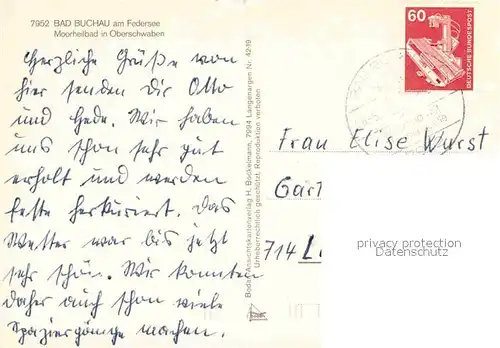 7952 BAD BUCHAU am Federsee
Moorheilbad in Oberschwaben
Herzliche Grüße von
hier senden Dir Otto
und Hede. Wir haben
uns schon sehr gut
erholt und werden
feste herkuriert. Das
Wetter war bis jetzt
sehr schön. Wir konnten
daher auch schon viele
Spaziergänge machen.
Bodan-Ansichtskartenverlag H. Bockelmann, 7994 Langenargen Nr. 42-19
Urheberrechtlich geschützt. Reproduktion verboten
60
DEUTSCHE BUNDESPOST
Frau Elise Wurst
Gart
714 L
privacy protection
Datenschutz